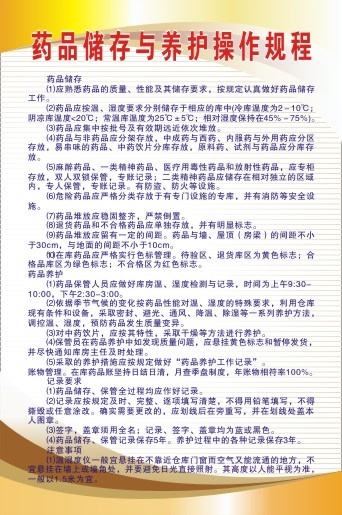 药品储存与养护操作规程
药品储存
⑴应熟悉药品的质量、性能及其储存要求，按规定认真做好药品储存
工作。
⑵药品应按温、湿度要求分别储存于相应的库中(冷库温度为2－10℃；
阴凉库温度<20℃；常温库温度为25℃±5℃；相对湿度保持在45%－75%)。
⑶药品应集中按批号及有效期远近依次堆放。
⑷药品与非药品应分架存放，中成药与西药、内服药与外用药应分区
存放，易串味的药品、中药饮片分库存放，原料药、试剂与药品应分库存
放。
⑸麻醉药品、一类精神药品、医疗用毒性药品和放射性药品，应专柜
存放，双人双锁保管，专账记录；二类精神药品应储存在相对独立的区域
内，专人保管，专账记录。有防盗、防火等设施。
⑹危险药品应严格分类存放于有专门设施的专库，并有消防等安全设
施。
⑺药品堆放应稳固整齐，严禁倒置。
⑻退货药品和不合格药品应单独存放，并有明显标志。
⑼药品堆放应留有一定的间距。药品与墙、屋顶（房梁）的间距不小
于30cm，与地面的间距不小于10cm。
⑽在库药品应严格实行色标管理。待验区、退货库区为黄色标志；合
格品库区为绿色标志；不合格区为红色标志。
药品养护
⑴药品保管人员应做好库房温、湿度检测与记录，时间为上午9:30-
10:00，下午2:30-3:00。
⑵依据季节气候的变化按药品性能对温、湿度的特殊要求，利用仓库
现有条件和设备，采取密封、避光、通风、降温、除湿等一系列养护方法，
调控温、湿度，预防药品发生质量变异。
⑶对中药饮片，应按其特性，采取干燥等方法进行养护。
⑷保管员在药品养护中如发现质量问题，应悬挂黄色标志和暂停发货，
并尽快通知库房主任及时处理。
⑸采取的养护措施应按规定做好“药品养护工作记录”。
账物管理。在库药品账坚持日结日清，月查季盘制度，年账物相符率100%。
记录要求
⑴药品储存、保管全过程均应作好记录。
⑵记录应按规定及时、完整、逐项填写清楚，不得用铅笔填写，不得
撕毁或任意涂改。确实需要更改的，应划线后在旁重写，并在划线处盖本
人图章。
⑶签字，盖章须用全名；记录、签字、盖章均为蓝或黑色。
⑷药品储存、保管记录保存5年。养护过程中的各种记录保存3年。
注意事项
⑴温湿度仪一般宜悬挂在不靠近仓库门窗而空气又能流通的地方，不
宜悬挂在墙上或墙角处，并要避免日光直接照射。其高度以人能平视为准，
一般以1.5米为宜。